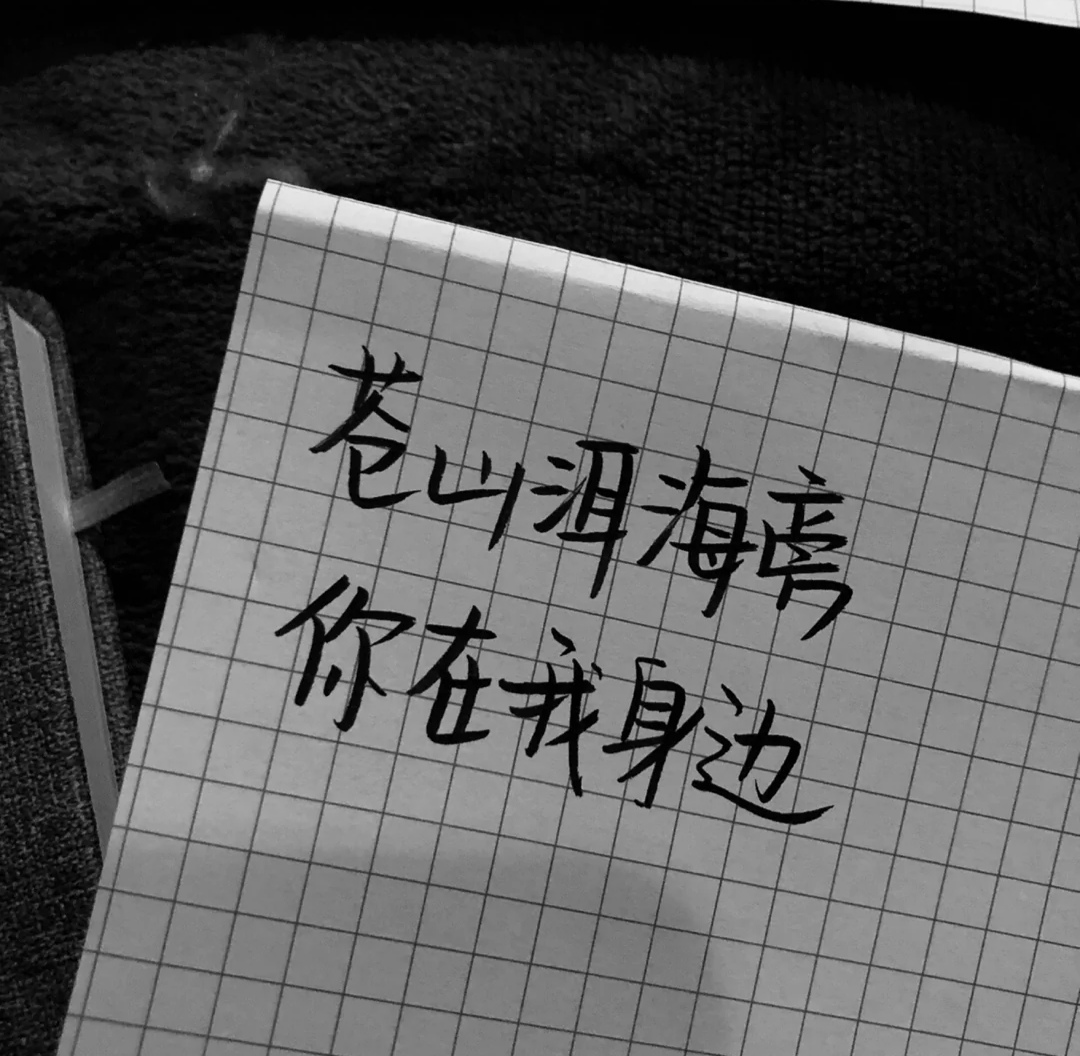 苍山洱海旁
你在我身边